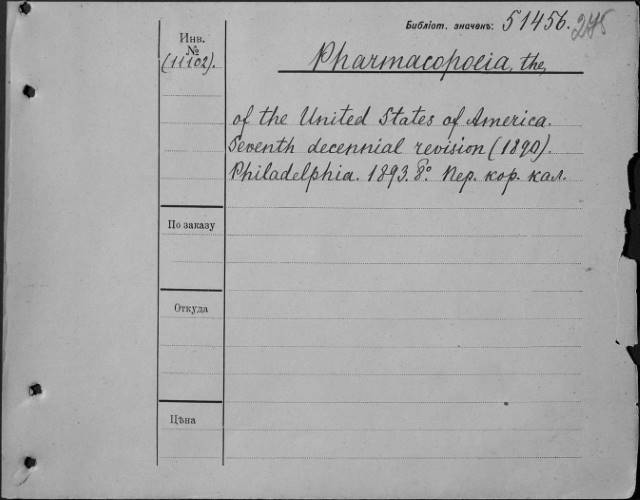 Библіот. значенъ: 51456. 245
Инв.
№
(11102).
Pharmacopoeia, the,
of the United States of America.
Seventh decennial revision (1890).
Philadelphia. 1893. 8°. Пер. кор. кал.
По заказу
Откуда
Цѣна